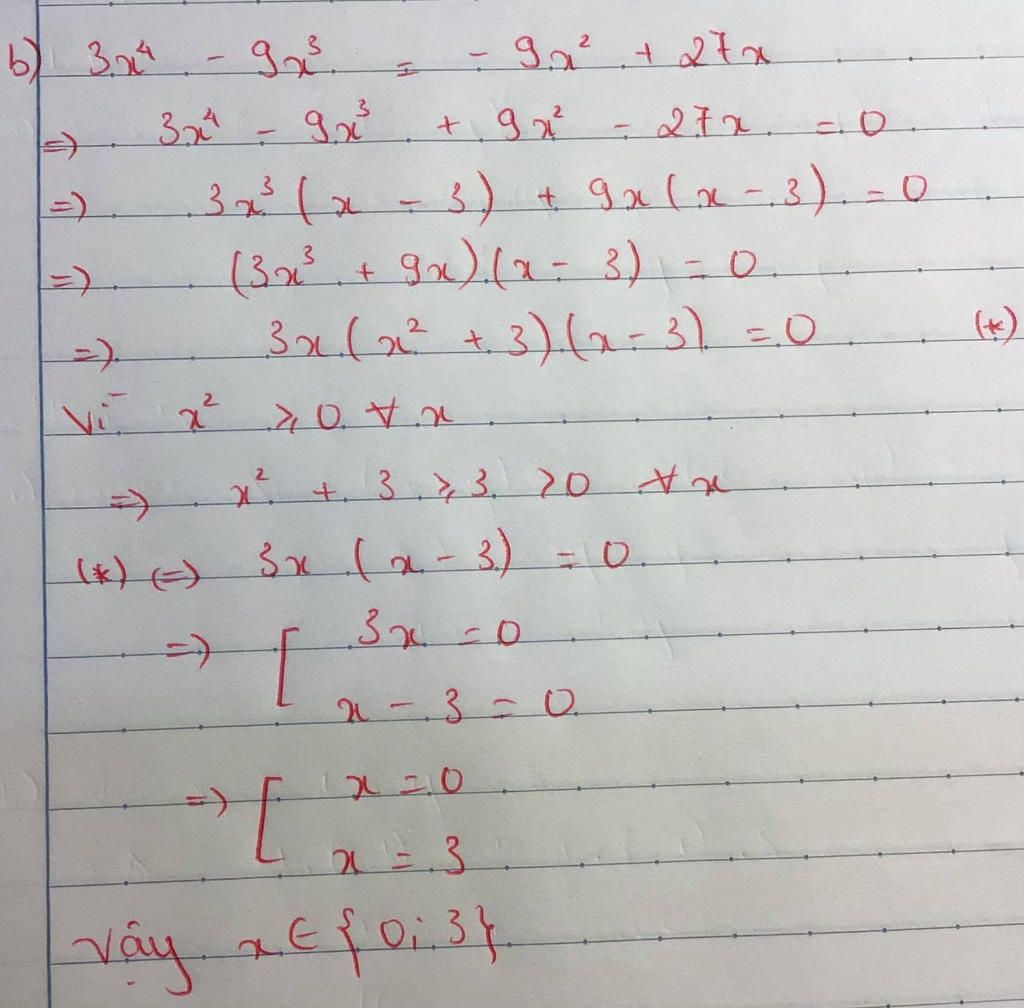 b) 3x⁴ - 9x³ = - 9x² + 27x
=) 3x⁴ - 9x³ + 9x² - 27x = 0
=) 3x³ ( x - 3) + 9x ( x - 3) = 0
=) (3x³ + 9x) (x - 3) = 0
=) 3x ( x² + 3) (x - 3) = 0 (*)
Vì x² ⩾ 0 ∀ x
=) x² + 3 ⩾ 3 > 0 ∀ x
(*) (=) 3x ( x - 3) = 0
=) [ 3x = 0
x - 3 = 0
=) [ x = 0
x = 3
Vậy x ∈ { 0; 3}